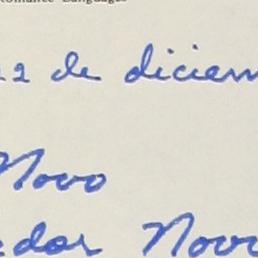 Romance Languages
22 de diciem
Novo
ador Novo